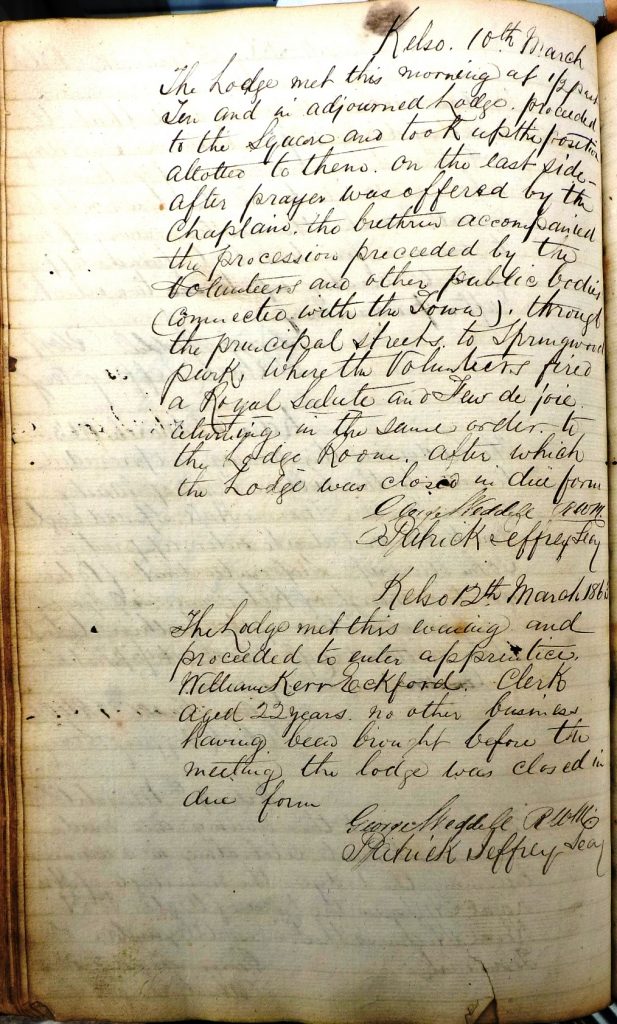 Kelso. 10th March
The Lodge met this morning at 1/2 past
Ten and in adjourned Lodge. proceeded
to the Square and took up the position
allotted to them. on the east side-
after prayer was offered by the
Chaplain. the brethren accompanied
the procession preceeded by the
Volunteers and other public bodies
(connected with the Town). through
the principal streets, to Springwood
park, where the Volunteers fired
a Royal Salute and Feu de joie
returning in the same order. to
the Lodge Room. after which
the Lodge was closed in due form
George Weddell RWM.
Patrick Jeffrey Secy
Kelso 12th March 1863
The Lodge met this evening and
proceeded to enter apprentice.
William Kerr Eckford. Clerk
aged 22 years. no other business.
having been brought before the
meeting the lodge was closed in
due form
George Weddell R.W.M.
Patrick Jeffrey Secy